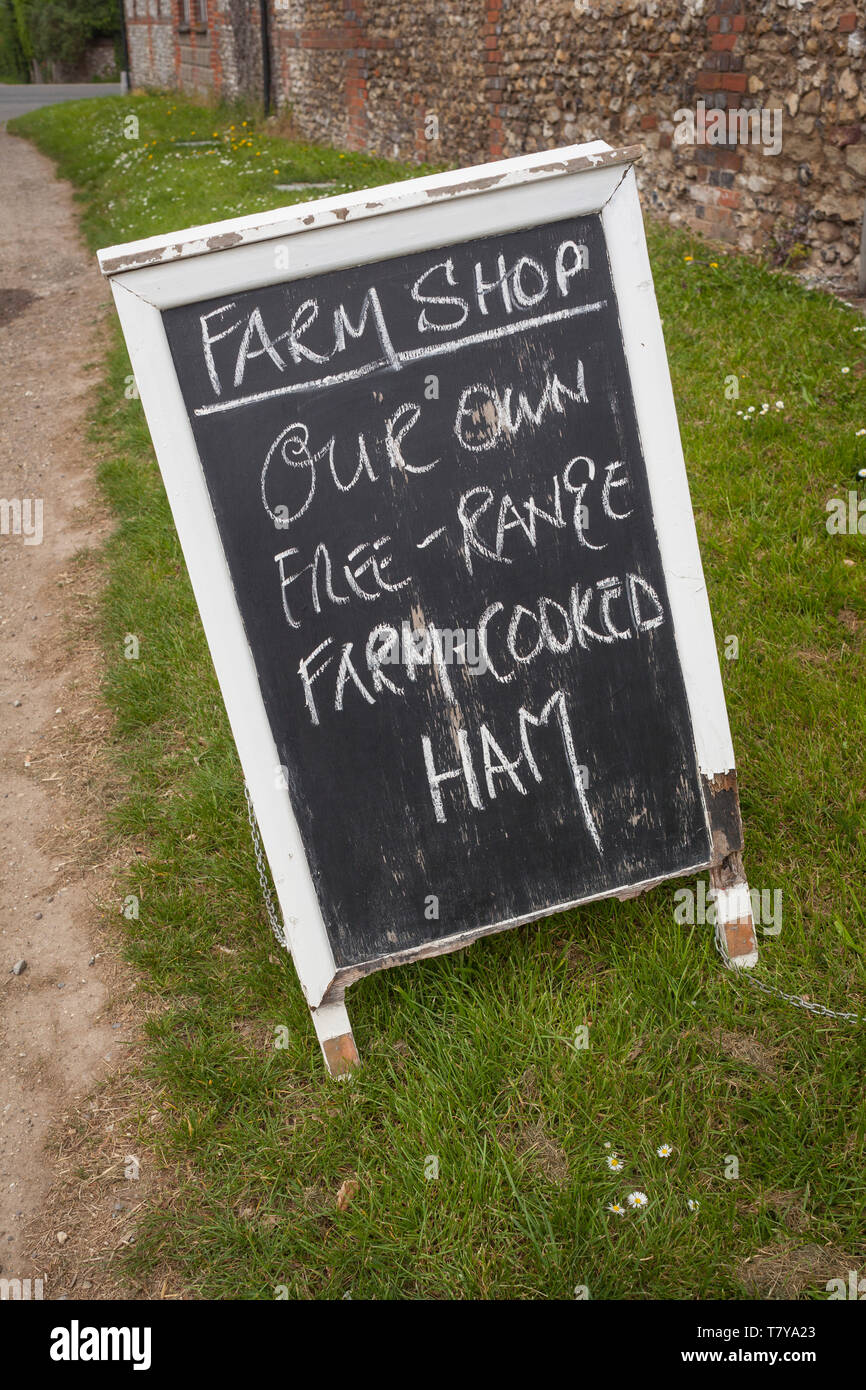 FARM SHOP
OUR OWN
FREE-RANGE
FARM-COOKED
HAM
alamy
Image ID: T7YA23
www.alamy.com